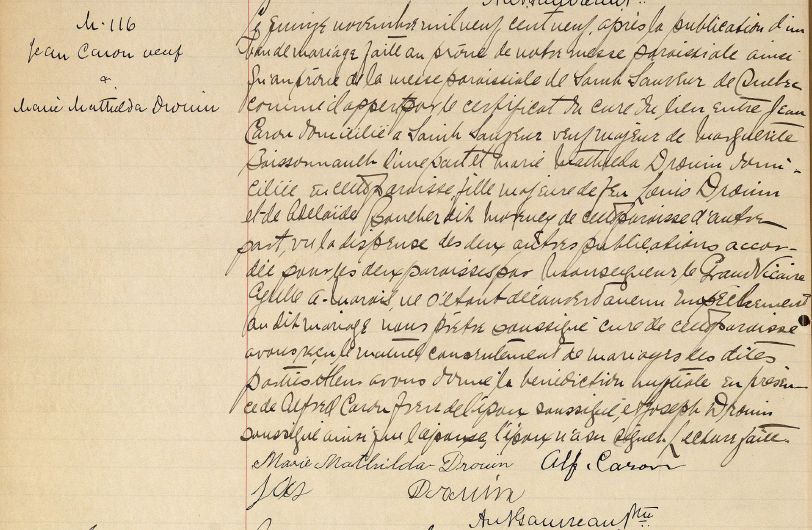 M-116
Jean Caron veuf
&
Marie Mathilda Drouin
Le quinze novembre mil neuf cent neuf, après la publication d'un
ban de mariage faite au prône de notre messe paroissiale ainsi
qu'au prône de la messe paroissiale de Saint Sauveur de Québec
comme il appert par le certificat du curé du lieu entre Jean
Caron domicilié à Saint Sauveur veuf majeur de Marguerite
Boissonnault d'une part et Marie Mathilda Drouin domi-
ciliée en cette paroisse fille majeure de feu Louis Drouin
et de Adelaïde dit de cette paroisse d'autre
part, vu la dispense des deux autres publications accor-
dée pour les deux paroisses par Monseigneur le Grand Vicaire
Cyrille A. Marois, ne s'étant découvert aucun empêchement
au dit mariage nous prêtre soussigné curé de cette paroisse
avons reçu le mutuel consentement de mariage des dites
parties & leur avons donné la bénédiction nuptiale en présen-
ce de Alfred Caron frère de l'époux soussigné, et Joseph Drouin
soussigné ainsi que l'épouse, l'époux n'a su signer. Lecture faite.
Marie Mathilda Drouin Alf. Caron
Jos Drouin
Ptre